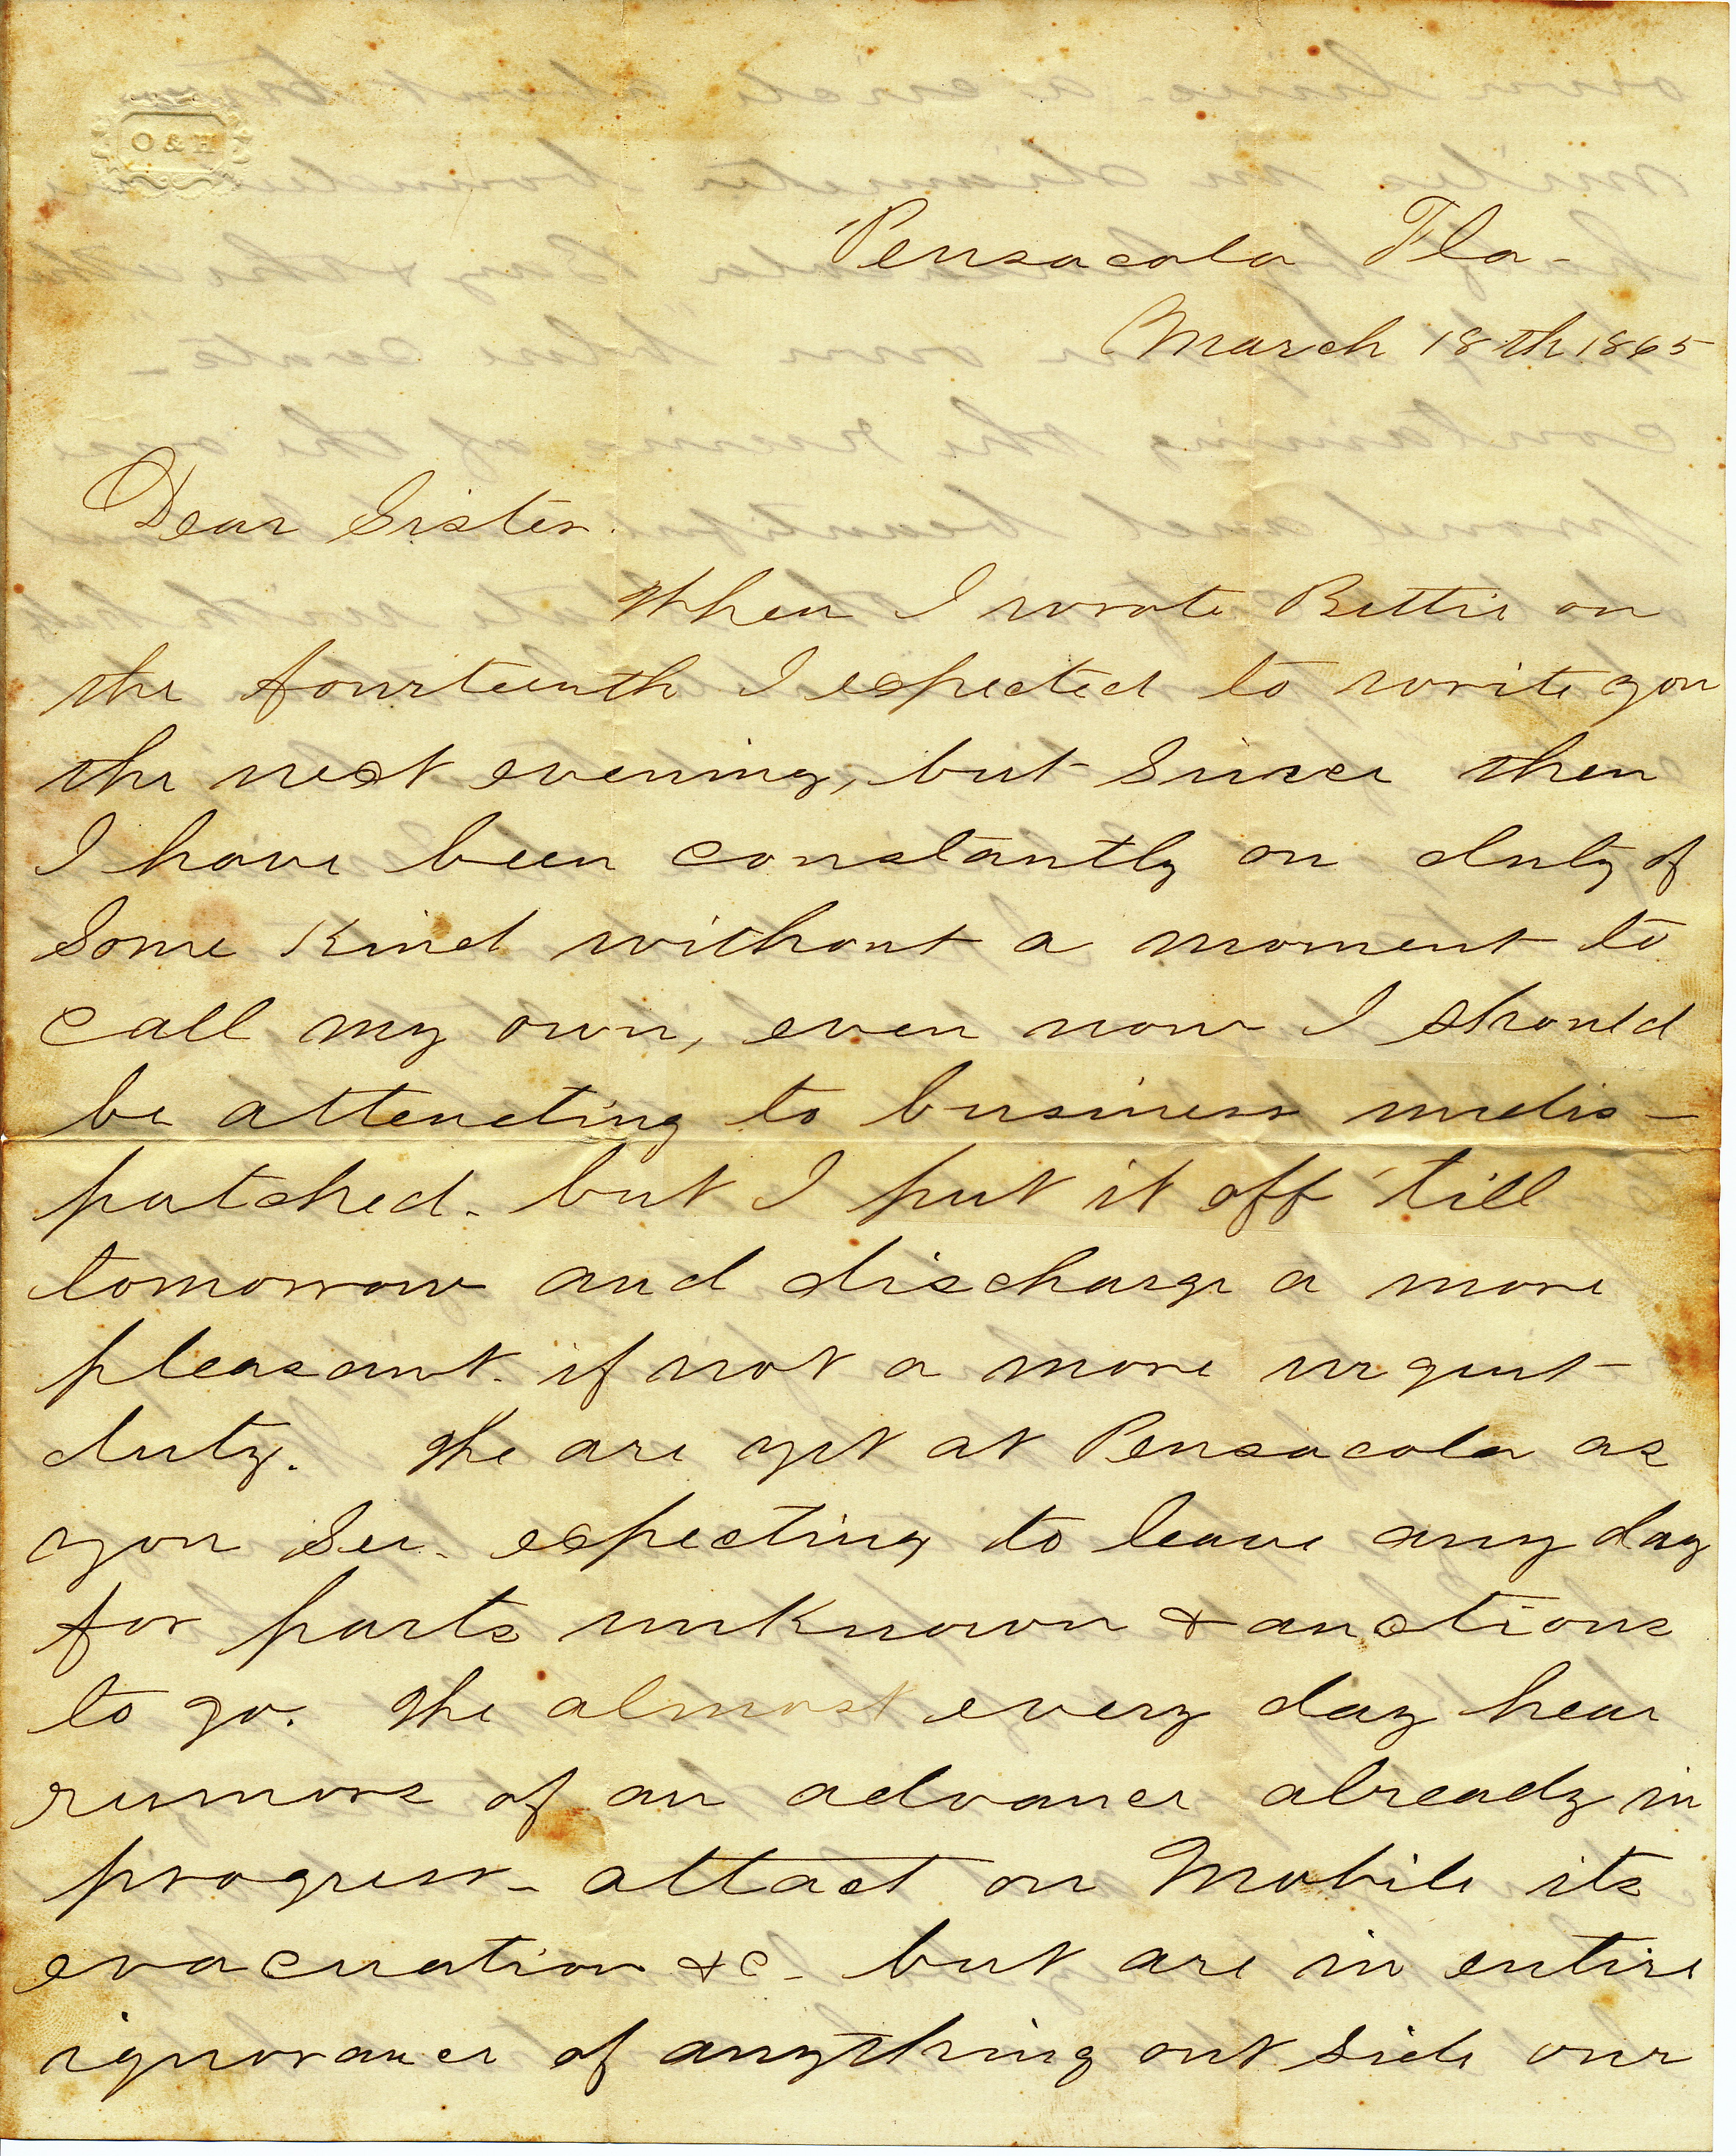 O & H
Pensacola Fla-
March 18th 1865
Dear Sister.
When I wrote Bettie on
the fourteenth I expected to write you
the next evening, but Since then
I have been constantly on duty of
Some Kind without a moment to
call my own, even now I should
be attending to business undis-
patched- but I put it off 'till
tomorrow and discharge a more
pleasant- if not a more urgent
duty. We are yet at Pensacola as
you See- expecting to leave any day
for parts unknown & anctions
to go. We almost every day hear
rumors of an advance already in
progress- attact on Mobile its
evacuation &c- but are in entire
ignorance of anything out side our